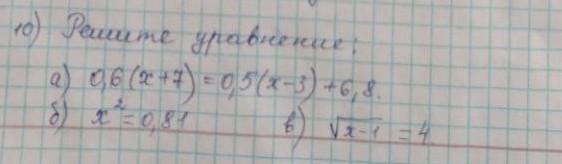 10) Решите уравнение:
а) 0,6(x+7)=0,5(x-3)+6,8.
б) x²=0,81 в) √x-1 =4.